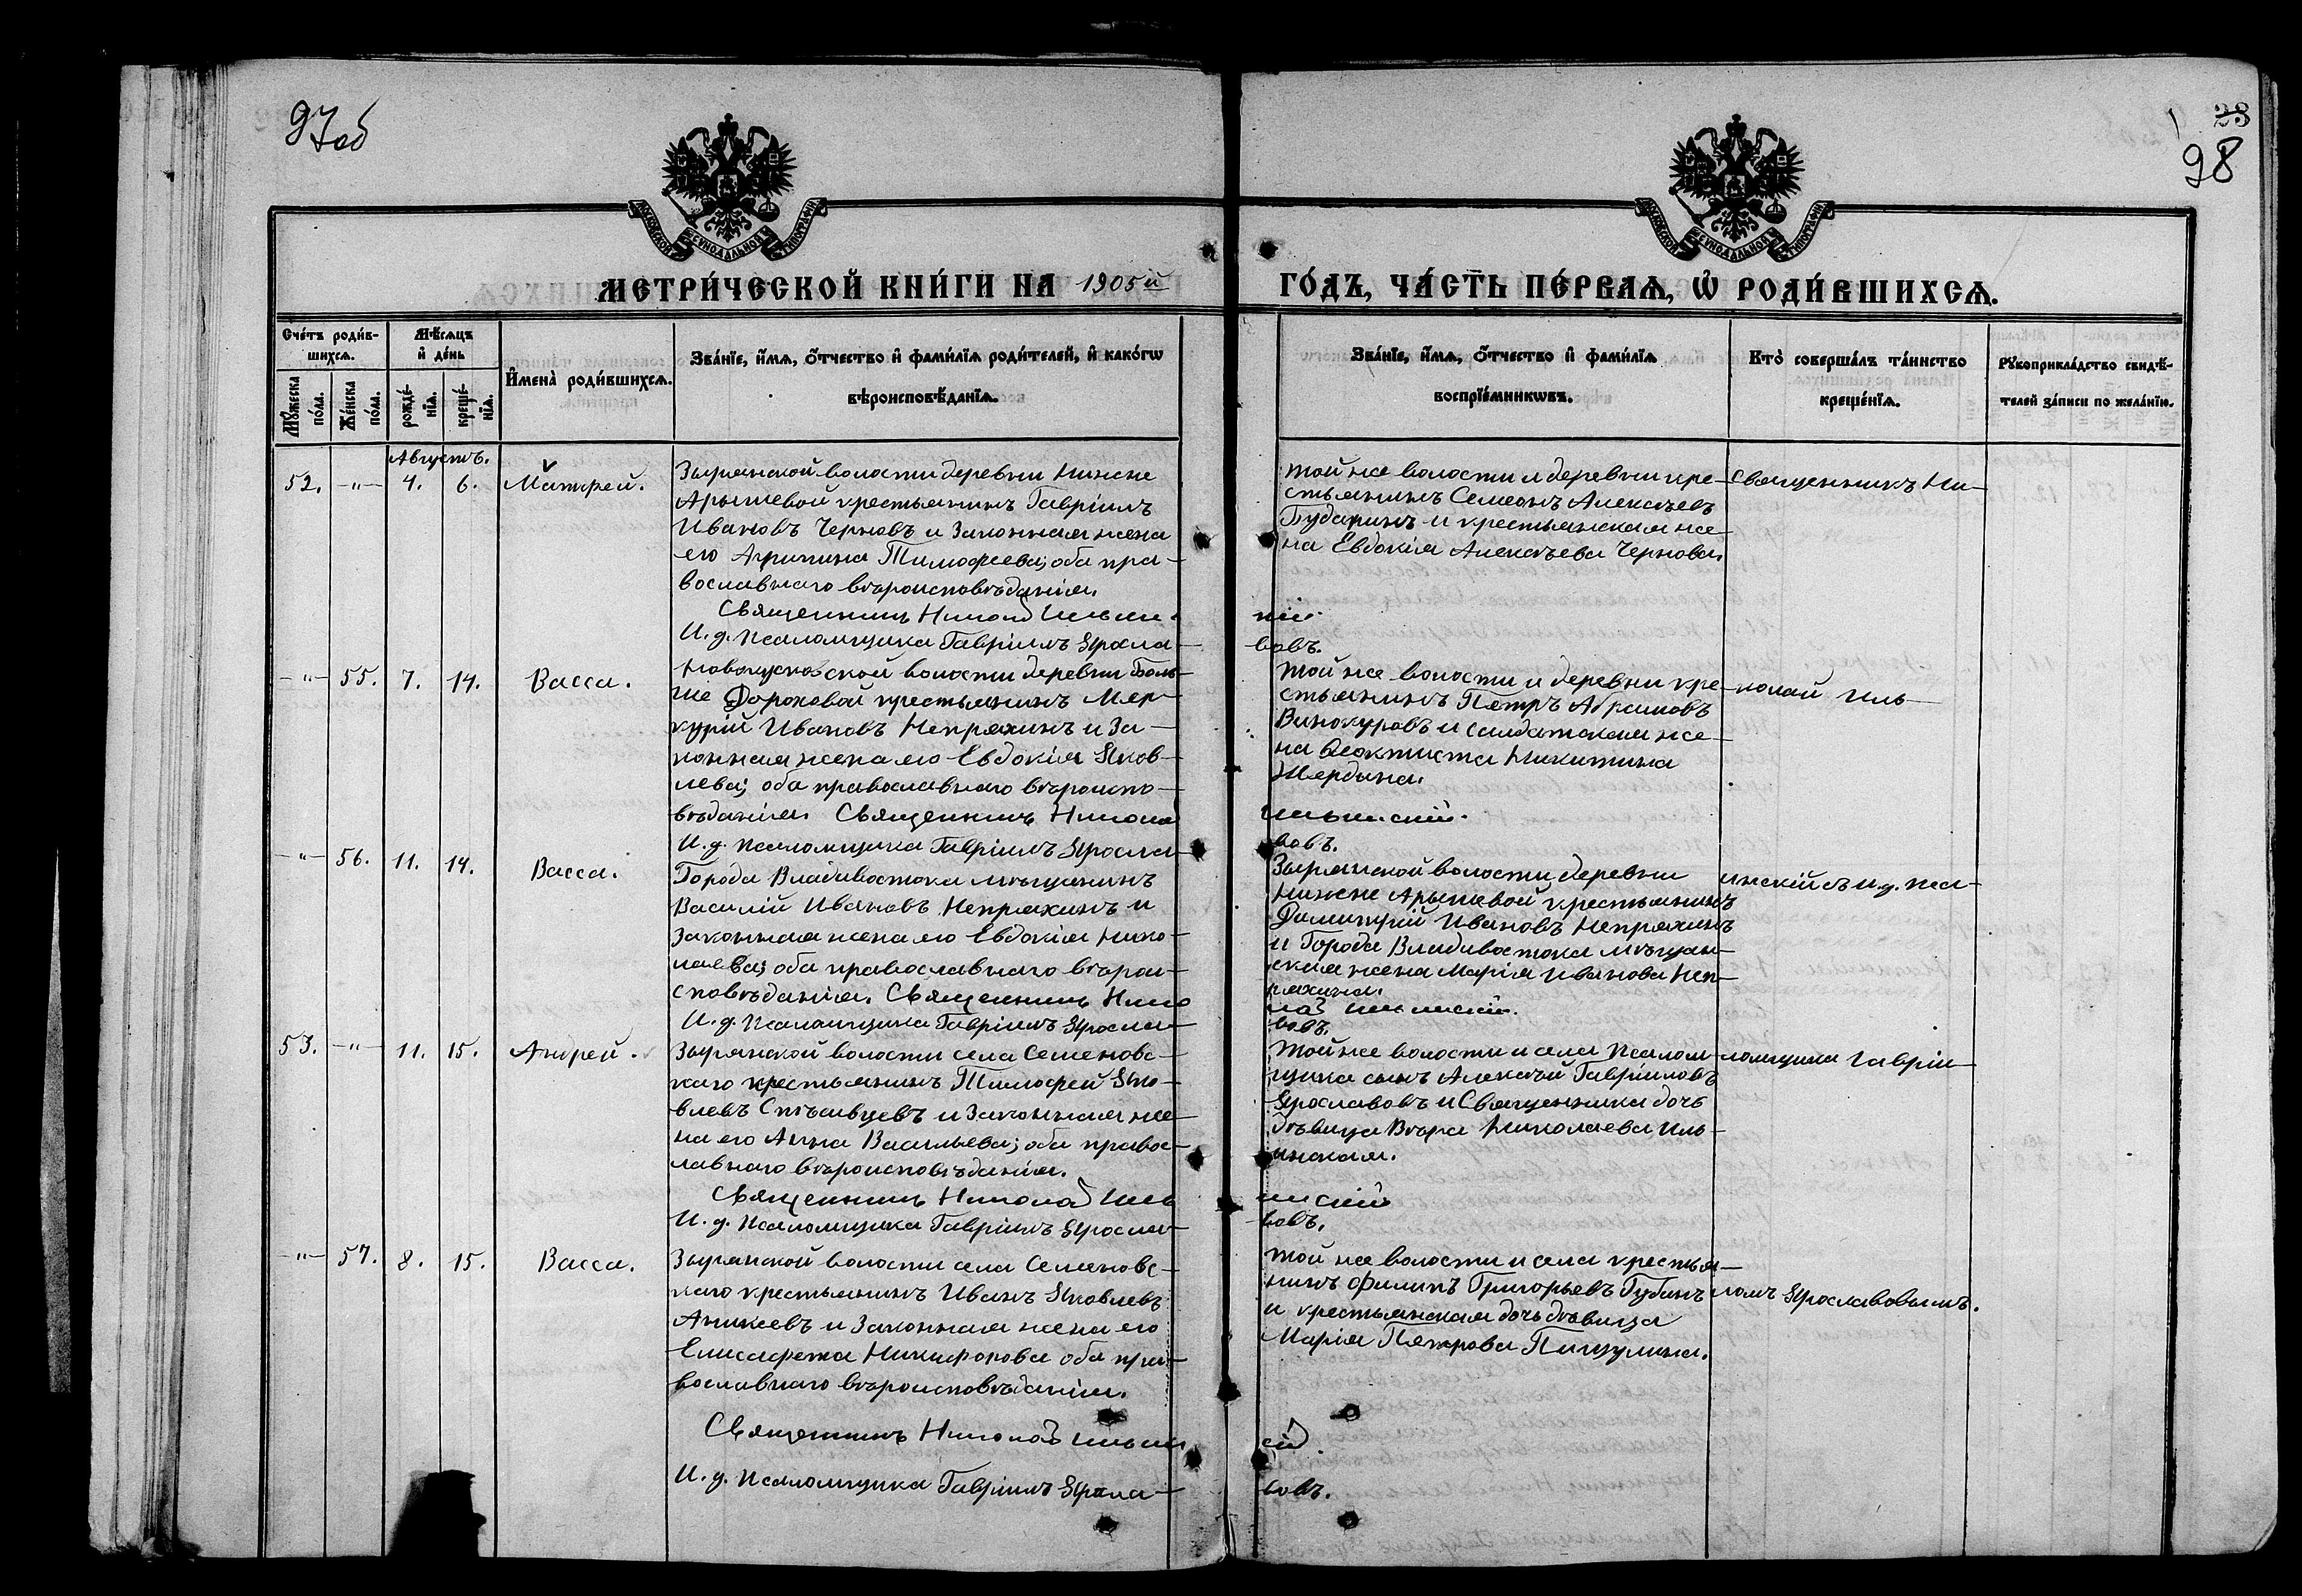 97об
23
98
МОСКОВСКОЙ СѴНОДАЛЬНОЙ ТИПОГРАФІИ
МОСКОВСКОЙ СѴНОДАЛЬНОЙ ТИПОГРАФІИ
МЕТРИ́ЧЕСКОЙ КНИ́ГИ НА 1905й ГО́ДЪ, ЧА́СТЬ ПЕ́РВАѦ, Ѡ҆ РОДИ́ВШИХСѦ.
Сче́тъ роди́в-
шихсѧ.
Мꙋ́жеска
по́ла.
Же́нска
по́ла.
Мѣ́сѧцъ
и҆ де́нь
рожде́-
нїѧ.
креще́-
нїѧ.
И҆мена̀ роди́вшихсѧ.
Зва́нїе, и҆́мѧ, ѻ҆́тчество и҆ фами́лїѧ роди́телей, и҆ како́гѡ
вѣроисповѣ́данїѧ.
Зва́нїе, и҆́мѧ, ѻ҆́тчество и҆ фами́лїѧ
воспрїе́мникѡвъ.
Кто̀ соверша́лъ та́инство
креще́нїѧ.
Рꙋкоприкла́дство свидѣ́-
телей за́писи по жела́нїю.
Августъ.
52. -"- 4. 6. Матфей.
Зырянской волости деревни Нижне
Арышевой крестьянинъ Гавріилъ
Ивановъ Черновъ и законная жена
его Агрипина Тимофеева; оба пра-
вославнаго вѣроисповѣданія.
той же волости и деревни кре-
стьянинъ Семеонъ Алексѣевъ
Бударинъ и крестьянская же-
на Евдокія Алексѣева Чернова.
Священникъ Ни-
Священникъ Николай Ильинскій
И. д. псаломщика Гавріилъ Ярославовъ.
-"- 55. 7. 14. Васса.
Новокусковской волости деревни Боль-
ше Дороховой крестьянинъ Мер-
курій Ивановъ Непряхинъ и за-
конная жена его Евдокія Яков-
лева; оба православнаго вѣроиспо-
вѣданія. Священникъ Николай Ильинскій.
И. д. псаломщика Гавріилъ Ярославовъ.
той же волости и деревни кре-
стьянинъ Петръ Абрамовъ
Винокуровъ и солдатская же-
на Ѳеоктиста Никитина
Жердина.
колай Иль-
-"- 56. 11. 14. Васса.
Города Владивостока мѣщанинъ
Василій Ивановъ Непряхинъ и
законная жена его Евдокія Нико-
лаева; оба православнаго вѣрои-
сповѣданія. Священникъ Николай Ильинскій.
И. д. псаломщика Гавріилъ Ярославовъ.
Зырянской волости деревни
Нижне Арышевой крестьянинъ
Димитрій Ивановъ Непряхинъ
и Города Владивостока мѣщан-
ская жена Марія Иванова Неп-
ряхина.
инскій съ и. д. пса-
53. -"- 11. 15. Андрей.
Зырянской волости села Семеновс-
каго крестьянинъ Тимофей Яко-
влевъ Спѣсивцевъ и законная же-
на его Анна Васильева; оба правос-
лавнаго вѣроисповѣданія.
Священникъ Николай Ильинскій
И. д. псаломщика Гавріилъ Ярославовъ.
той же волости и села псалом-
щика сынъ Алексѣй Гавріиловъ
Ярославовъ и Священника дочь
дѣвица Вѣра Николаева Иль-
инская.
ломщика Гаврiи-
-"- 57. 8. 15. Васса.
Зырянской волости села Семеновс-
каго крестьянинъ Иванъ Яковлевъ
Аникеевъ и законная жена его
Елисафета Никифорова оба пра-
вославнаго вѣроисповѣданія.
той же волости и села крестья-
нинъ Филипъ Григорьевъ Губинъ
и крестьянская дочь дѣвица
Марія Петрова Пищулина.
ломъ Ярославовымъ.
Священникъ Николай Ильинскій.
И. д. псаломщика Гавріилъ Ярославовъ.